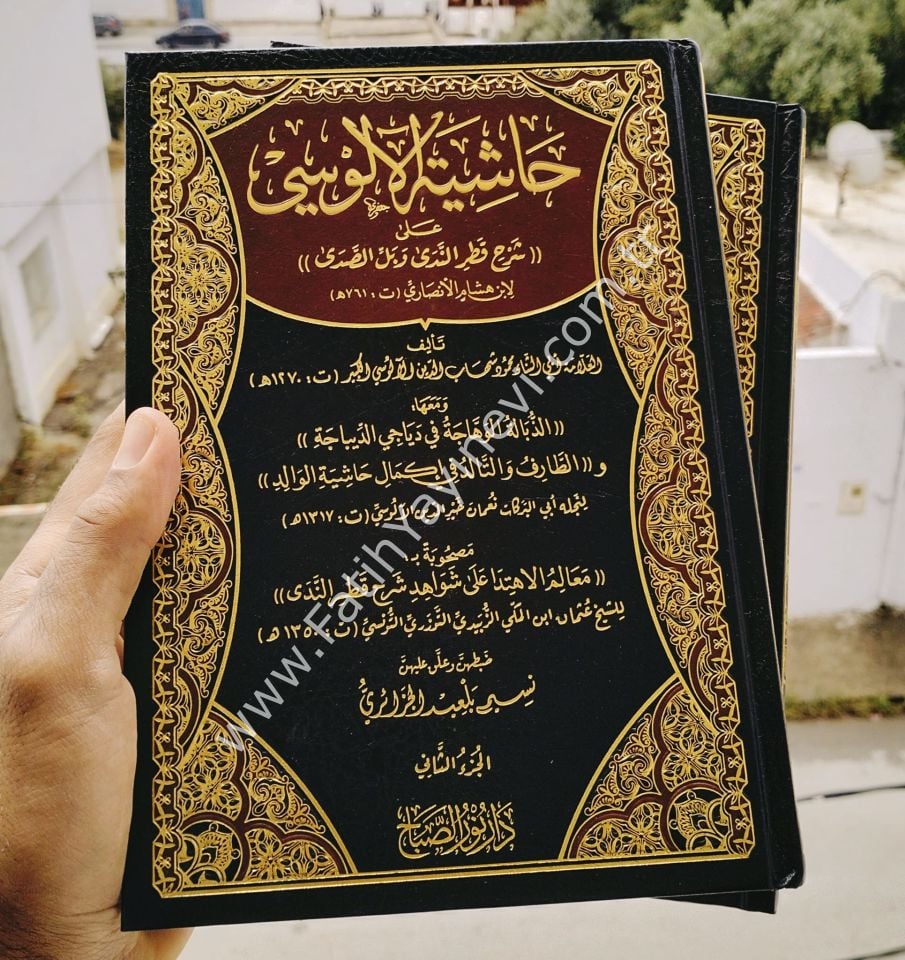 حَاشِيَة الآلُوْسِيّ
عَلَى
(( شَرْح قَطْرِ النَّدَى وَبَلّ الصَّدَى ))
لِابْنِ هِشَام الأنْصَارِيّ (ت: ٧٦١هـ)
تَأليف
العَلّامة أبي الثَّناء محمُود شهَاب الدّين الآلُوسي الكبير (ت: ١٢٧٠هـ)
وَمَعَهَا:
((الذُّبَالَةُ الوَهَّاجَةُ فِي دَيَاجِي الدِّيبَاجَة ))
و ((الطَّارِفُ وَالتَّالِدُ فِي إكمَالِ حَاشِيَةِ الوَالِدِ))
لِنَجْلِه أبي البَرَكَات نعْمَان خَيْر الدِّين الآلُوسِيّ (ت: ١٣١٧هـ)
مَصْحُوبَة بـ:
((مَعَالِم الاهْتِدَا عَلَى شَوَاهِدِ شَرْح قَطْرِ النَّدَى))
لِلشَّيخ عُثمَان ابن المَكّي الزَّبِيدِيّ التَّوزَرِيّ التُّونُسِيّ (ت: ١٣٥٠هـ)
ضَبطهنّ وعلّق عليهنّ
نسيم بلعيد الجَزَائريُّ
الجُزءُ الثَّاني
دَارُ نُورِ الصَّبَاح
www.FatihYayinevi.com.tr